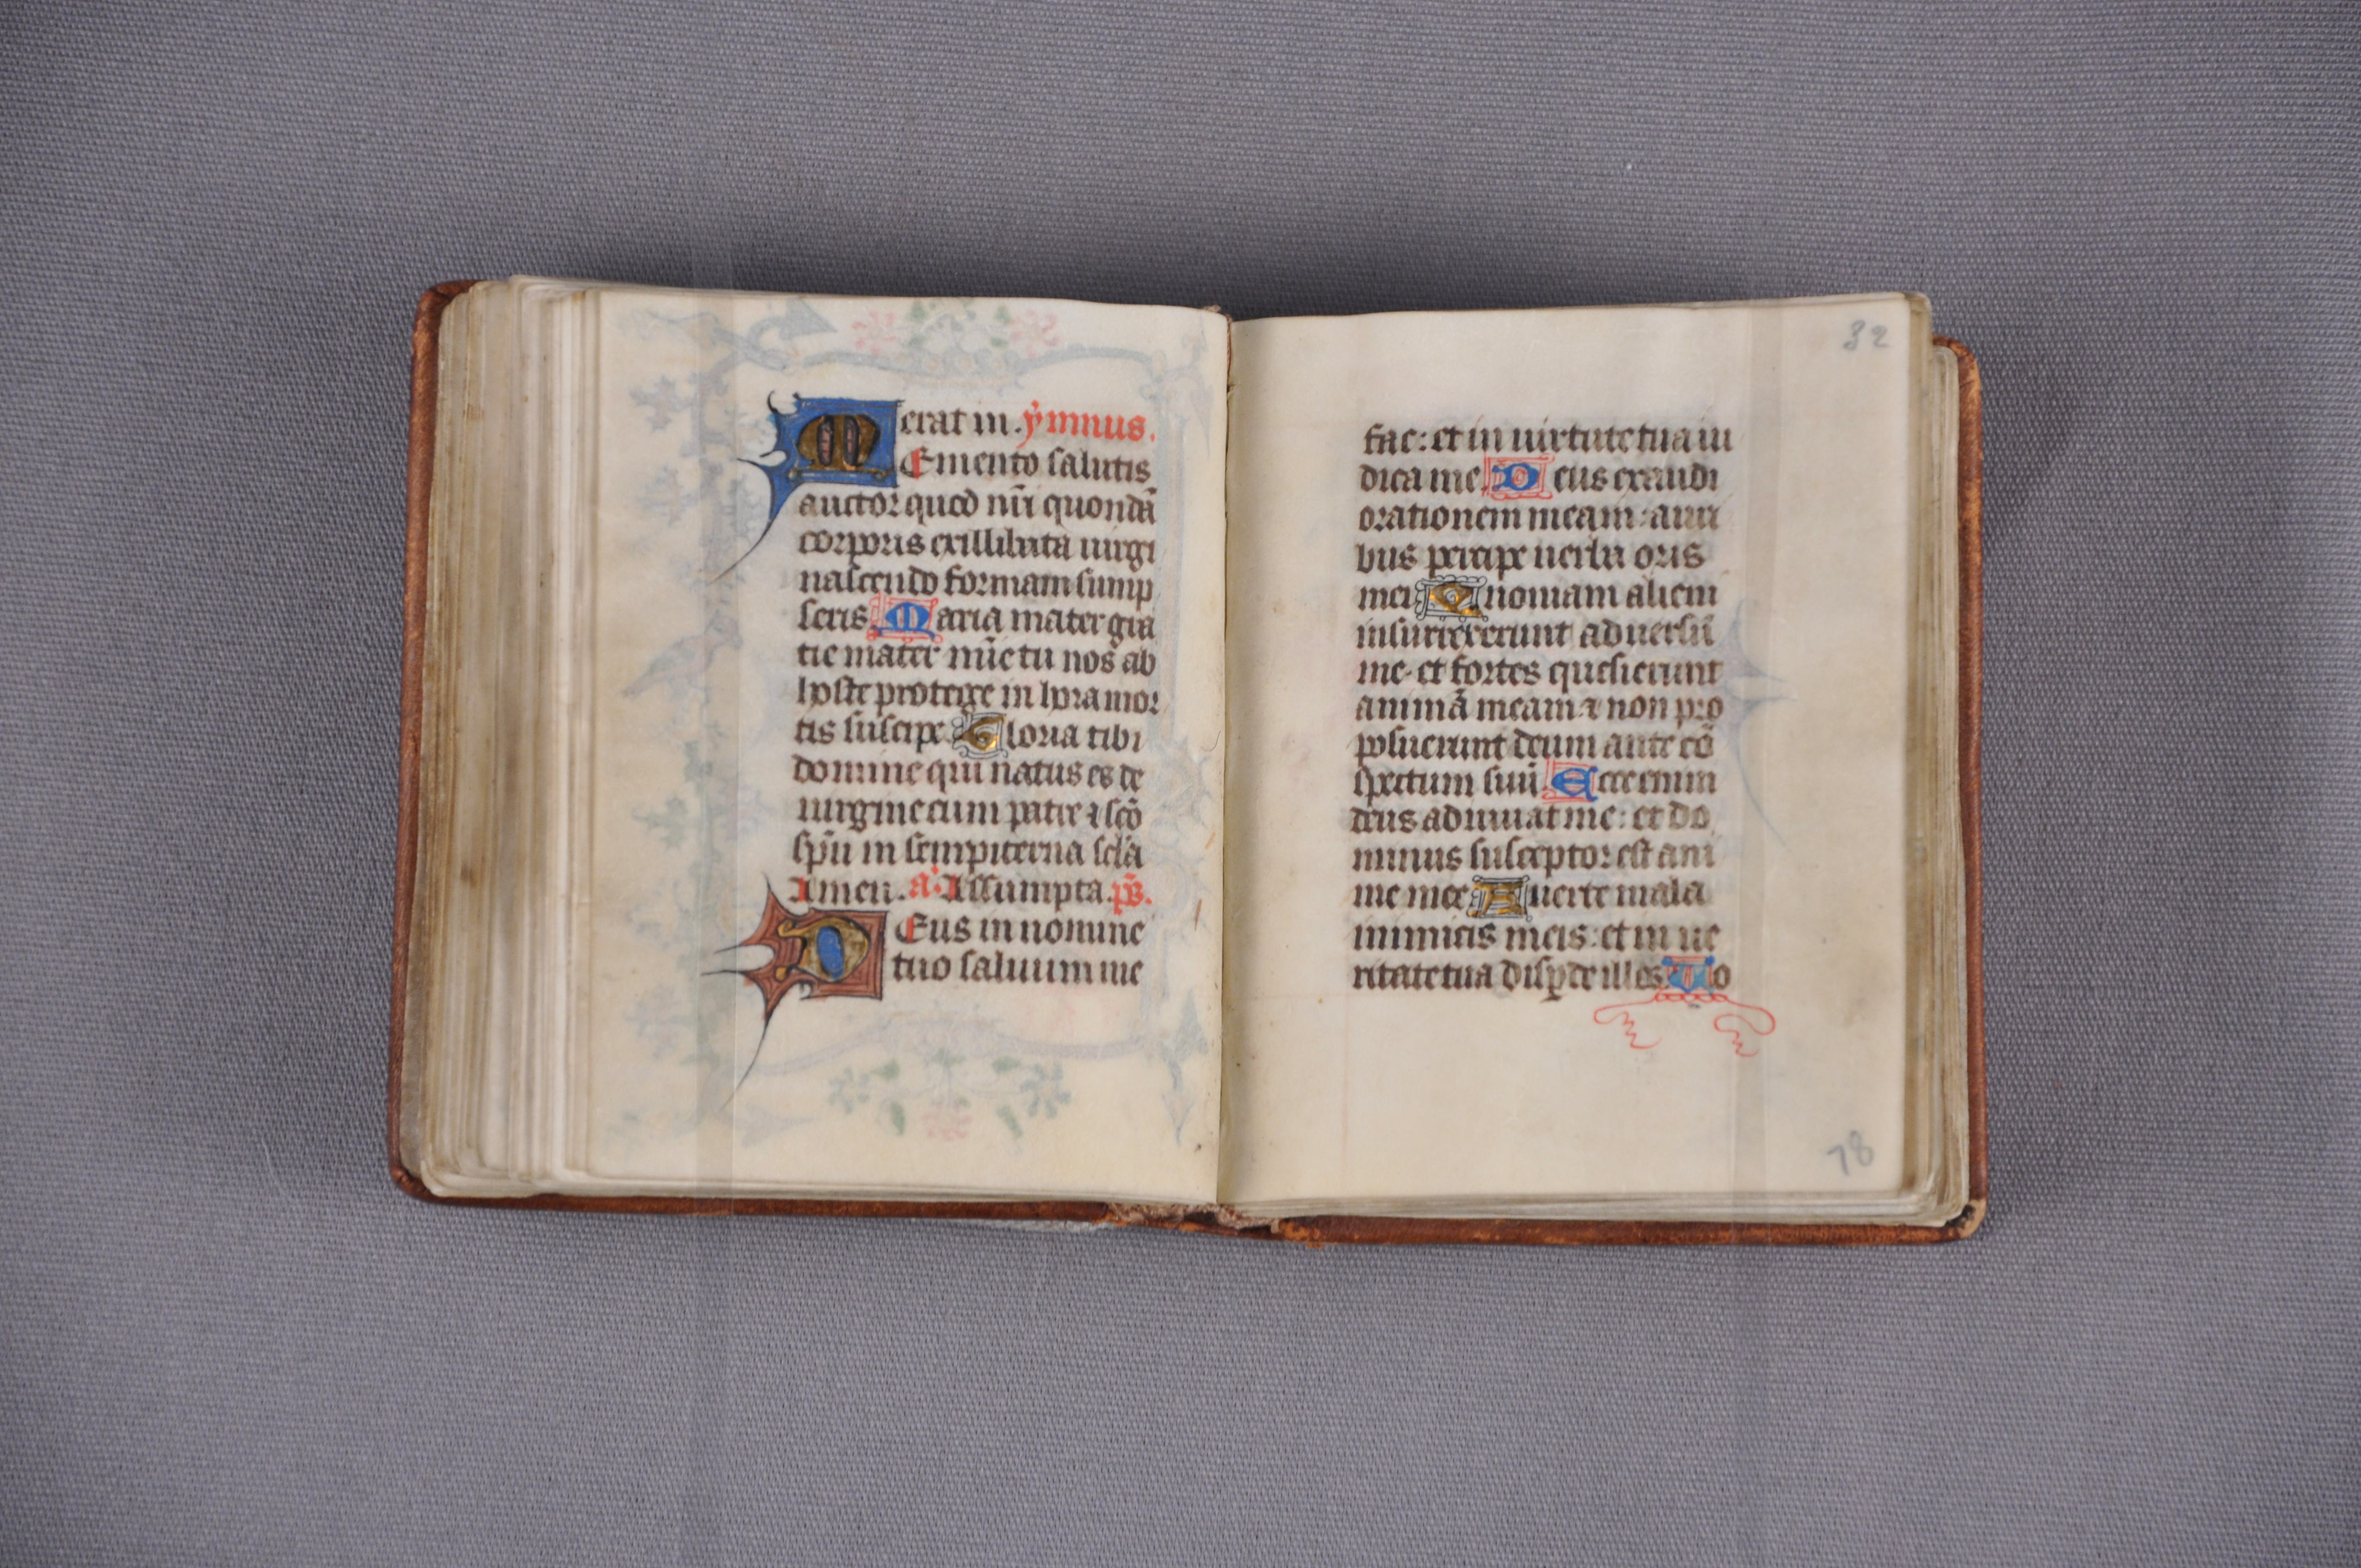 erat in. ẏmnus.
MEmento salutis
auctor quod nr̄i quondā
corporis exillibata uirgi
nascendo formam sump
seris Maria mater gra
tie mater mīe tu nos ab
hoste protege in hora mor
tis suscipe Gloria tibi
domine qui natus es de
uirgine cum patre ⁊ scō
spū in sempiterna scl̄a
Amen. a᷑ Assumpta. ps̄.
DEus in nomine
tuo saluum me
32
fac: et in uirtute tua iu
dica me Deus exaudi
orationem meam: auri
bus percipe uerba oris
mei Quoniam alieni
insurrexerunt aduersū
me et fortes quesierunt
animā meam ⁊ non pro
posuerunt deum ante cō
spectum suū Ecce enim
deus adiuuat me: et do
minus susceptor est ani
me mee Auerte mala
inimicis meis: et in ue
ritate tua disꝑde illos Uo
78